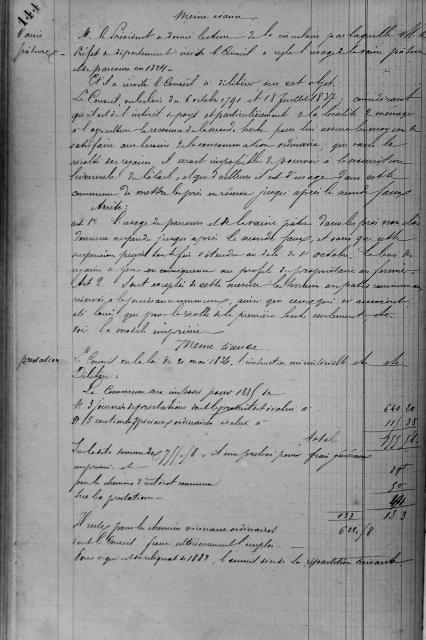 144
Même séance
Vaine pâture
M. le Président a donné lecture de la circulaire par laquelle M. le
Préfet du département invite le Conseil à régler l'usage de la vaine pâture
et du parcours en 1884.
Et il a invité le Conseil à délibérer sur cet objet.
Le Conseil, vu les lois du 6 octobre 1791 et 18 juillet 1837, considérant
qu'il est de l'intérêt du pays et particulièrement de la localité de ménager
à l'agriculture la ressource de la seconde herbe pour lui assurer le moyen de
satisfaire aux besoins de la consommation ordinaire, que sans la
récolte des regains, il serait impossible de pourvoir à la nourriture
hivernale du bétail, et que d'ailleurs il est d'usage dans cette
commune de mettre les prés en réserve jusques après la seconde faux
Arrête:
art 1er L'usage du parcours et de la vaine pâture dans les prés non clos
demeure suspendu jusques après la seconde faux, et sans que cette
suspension puisse toutefois s'étendre au delà du 1er octobre. Les
regains en conséquence au profit du propriétaire ou fermier.
Art 2. Sont exceptés de cette mesure les terrains en pâture communaux
réservés à la jouissance commune, ainsi que ceux qui
que pour la récolte de la première herbe seulement
voir le modèle imprimé
Même séance
prestation
Le Conseil vu la loi du 21 mai 1836, l'instruction ministérielle etc etc
Délibère:
La Commune sera imposée pour 1885 de
1° 3 journées de prestations dont le produit est évalué à 640 20
2° 5 centimes ordinaires évalués à 115 38
total 755 58
Sur la dite somme de 755,58, il sera prélevé pour frais généraux
imprimés et
pour les chemins d'intérêt commun 50
Sur les prestations
133 133
Il reste pour les chemins vicinaux ordinaires 622,58
dont le Conseil fera ultérieurement l'emploi.
reliquat de 1883, le conseil décide la répartition suivante